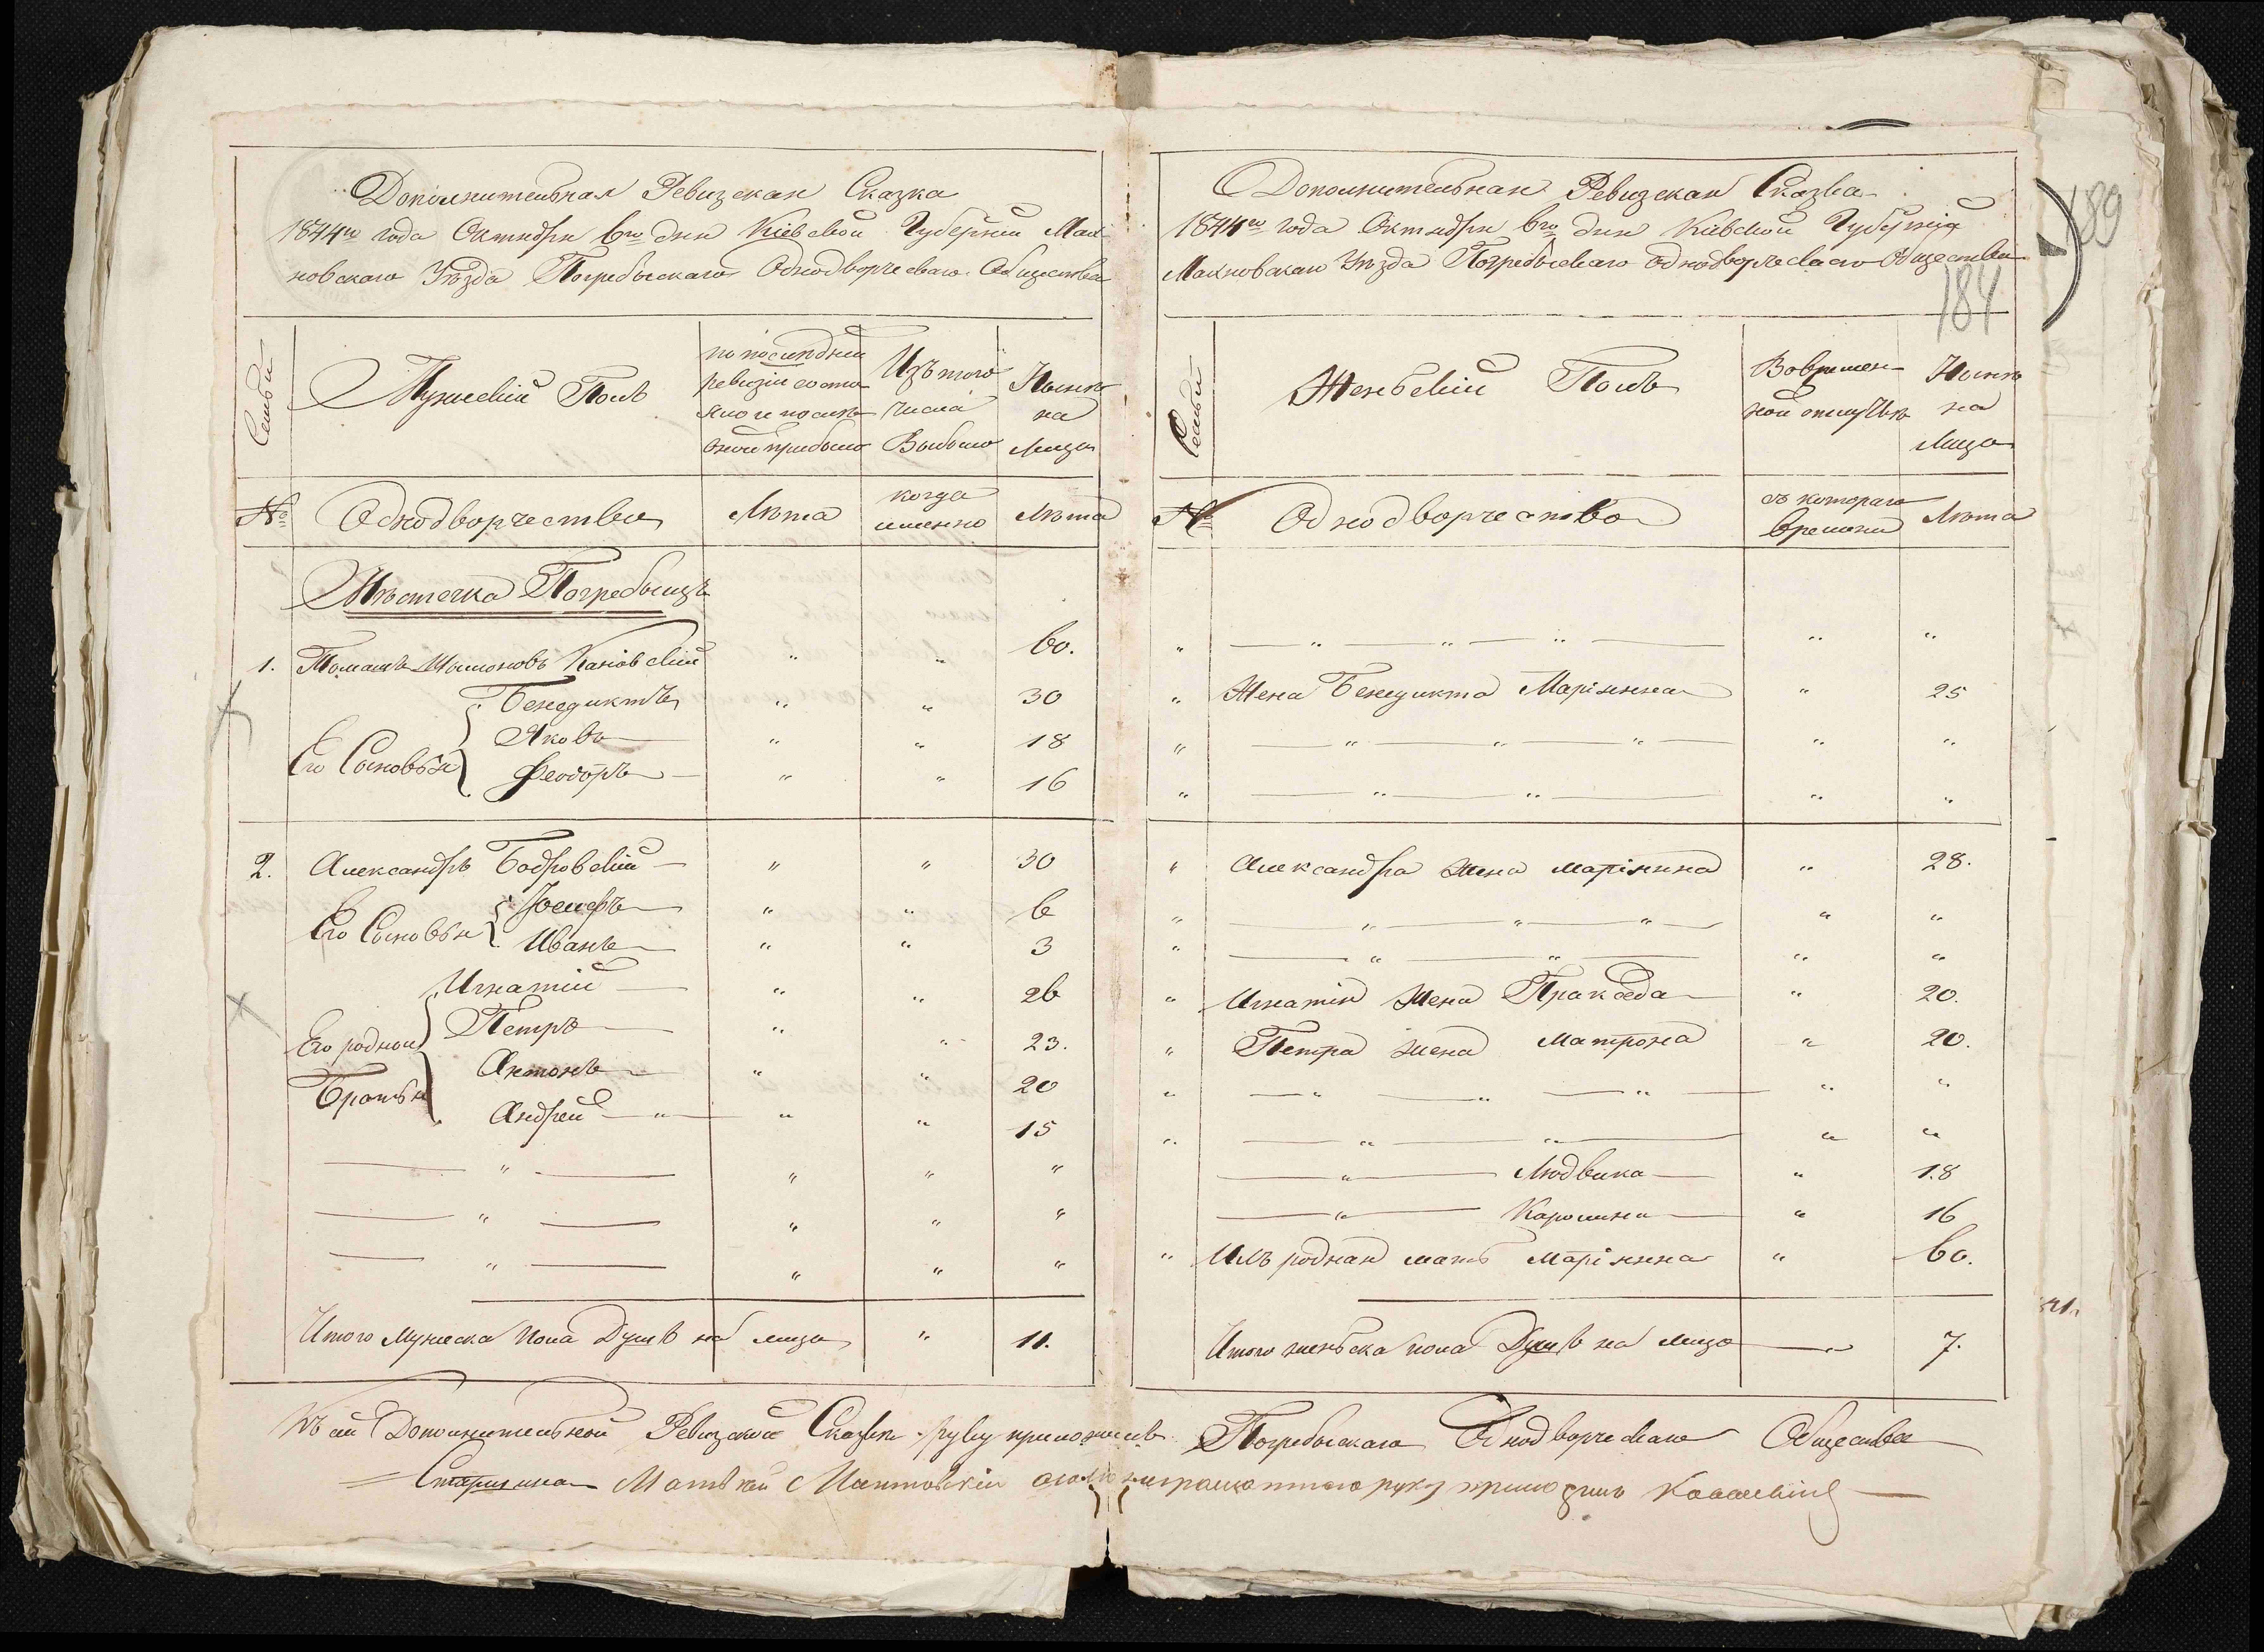 Дополнительная Ревизская Сказка
1844го года Октября 6го дня Кіевской Губерніи Мах-
новскаго Уѣзда Погребыскаго Однодворческаго Общества
Семьи
Мужескій Полъ
по послѣдней
ревизіи состо-
яло и послѣ
оной прибыло
Изъ того
числа
Выбыло
Нынѣ
на
лицо
№
Однодворчество
Лѣта
когда
именно
Лѣта
Мѣстечка Погребыщъ
1. Томашъ Шимоновъ Каніовскій " " 60.
Его Сыновья
Бенедиктъ " " 30
Яковъ " " 18
Феодоръ " " 16
2. Александръ Бодровскій " " 30
Его Сыновья
Іосифъ " " 6
Иванъ " " 3
Его родные
Братья
Игнатій " " 26
Петръ " " 23.
Антонъ " " 20
Андрей " " " 15
" " " "
" " " "
" " " "
Итого Мужеска пола Душъ на лицо " 11.
Дополнительная Ревизская Сказка
1844го года Октября 6го дня Кіевской Губерніи
Махновскаго Уѣзда Погребыскаго Однодворческаго Общества
189
184
Семьи
Женскій Полъ
Во времен-
ной отлучкѣ
Нынѣ
на
лицо
№
Однодворчество
съ котораго
времени
Лѣта
" " " " " "
" Жена Бенедикта Маріянна " 25
" " " " " "
" " " " "
" Александра жена Маріянна " 28.
" " " " " "
" " " " "
" Игнатія жена Пракседа " 20.
" Петра жена Матрона " 20.
" " " " " "
" " " " "
" Людвика " 18
" Каролина " 16
" Ихъ родная мать Маріянна " 60.
Итого женска пола Душъ на лицо " 7.
Къ сей Дополнительной Ревизской Сказки руку приложилъ Погребыскаго Однодворческаго Общества
Старшина руку приложилъ